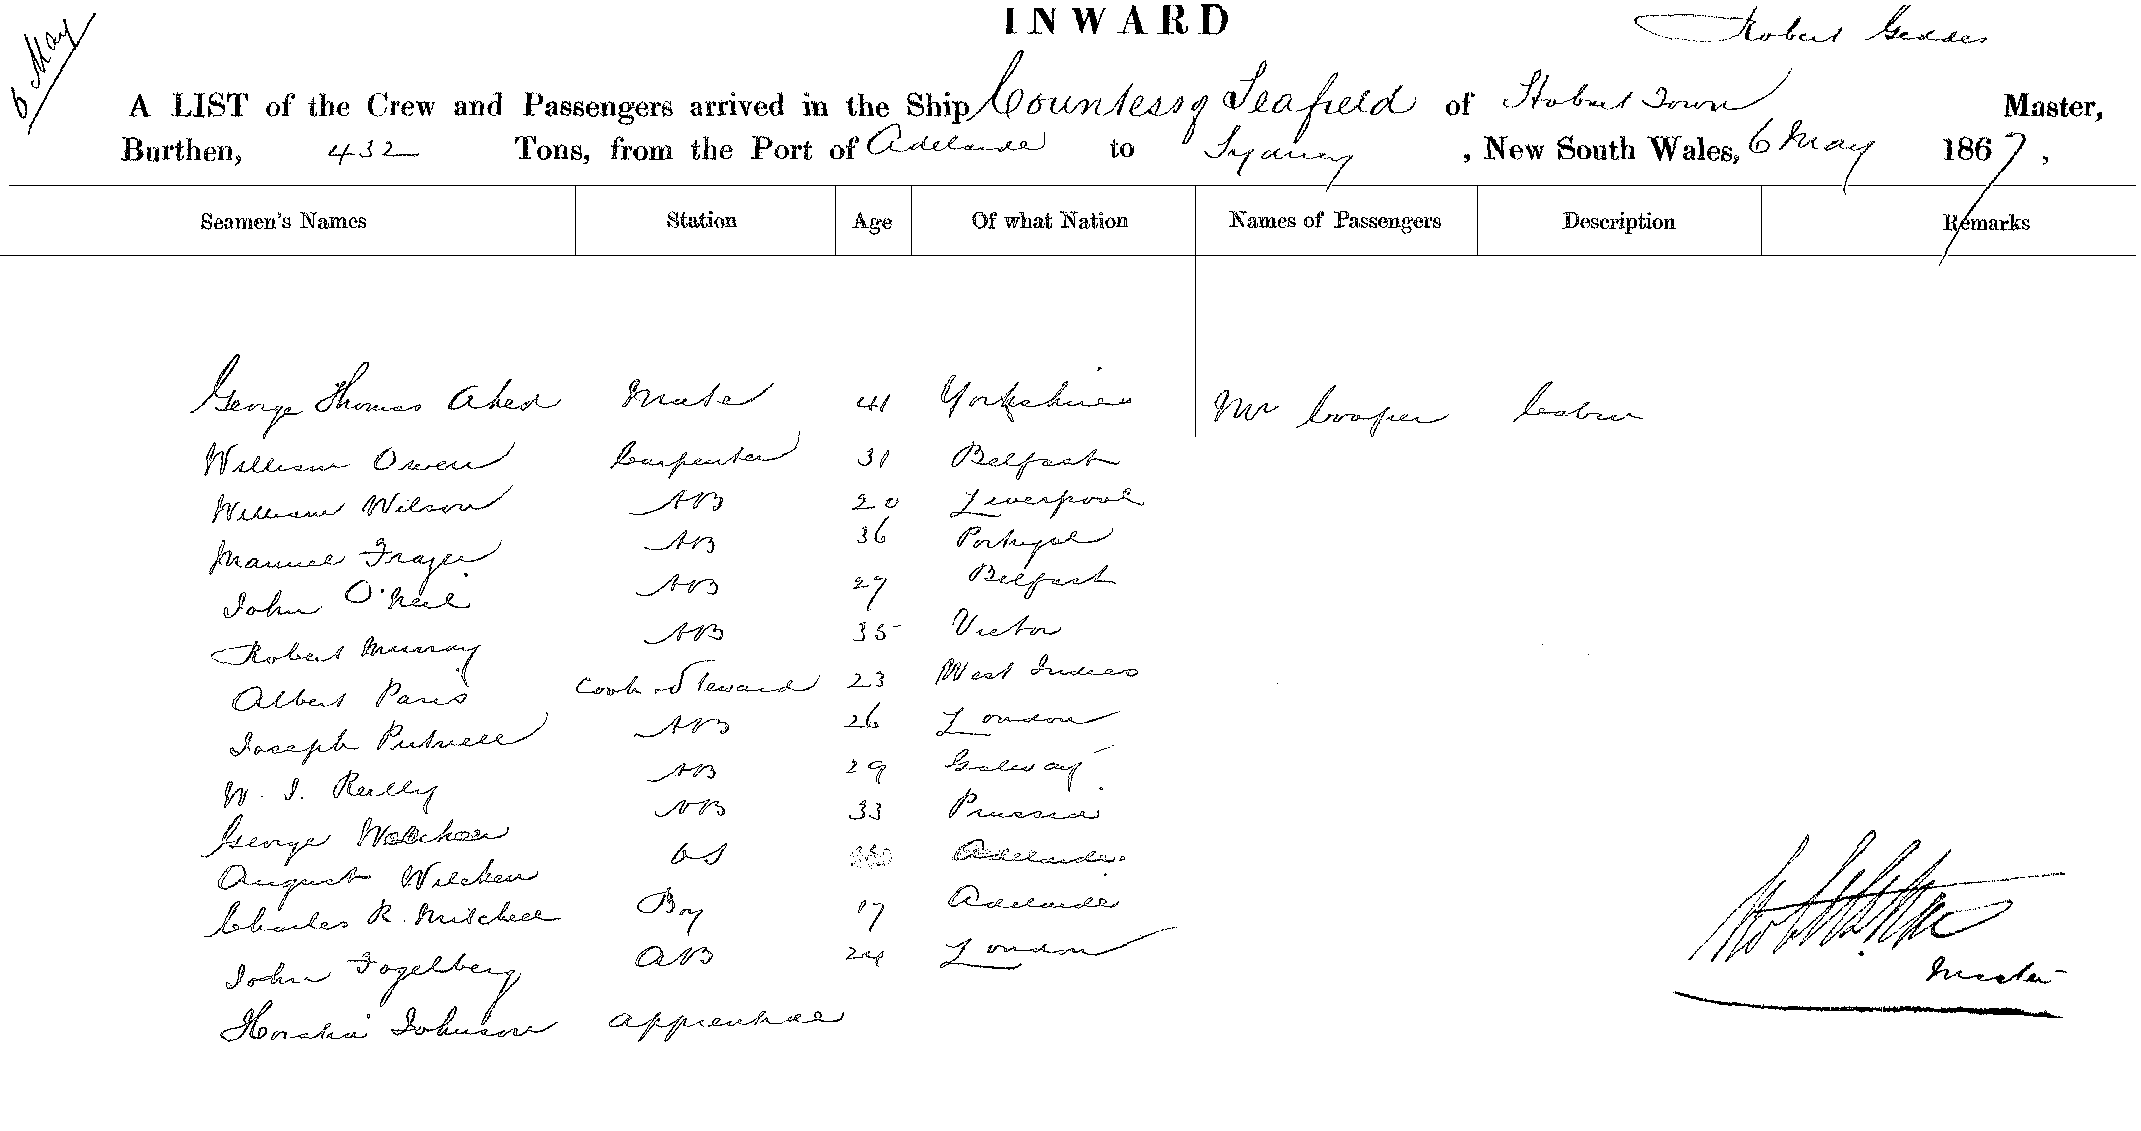 INWARD
6 May
Robert Geddes
A LIST of the Crew and Passengers arrived in the Ship Countess of Seafield of Hobart Town Master,
Burthen, 432 Tons, from the Port of Adelaide to Sydney, New South Wales, 6 May 1867,
Seamen's Names Station Age Of what Nation Names of Passengers Description Remarks
George Thomas Mate 41 Yorkshire Mr Cooper Cabin
William Owen Carpenter 31 Belfast
William Wilson AB 20 Liverpool
Manuel Frazer AB 36 Portugal
John O'Neil AB 27 Belfast
Robert Murray AB 35 Victor
Albert Paris Cook & Steward 23 West Indies
Joseph Putnell AB 26 London
W. J. Reilly AB 29 Galway
George AB 33 Prussia
August Wilcken OS Adelaide
Charles R. Mitchell Boy 17 Adelaide
John Fogelberg AB 24 London
Horatio Johnson apprentice
Master